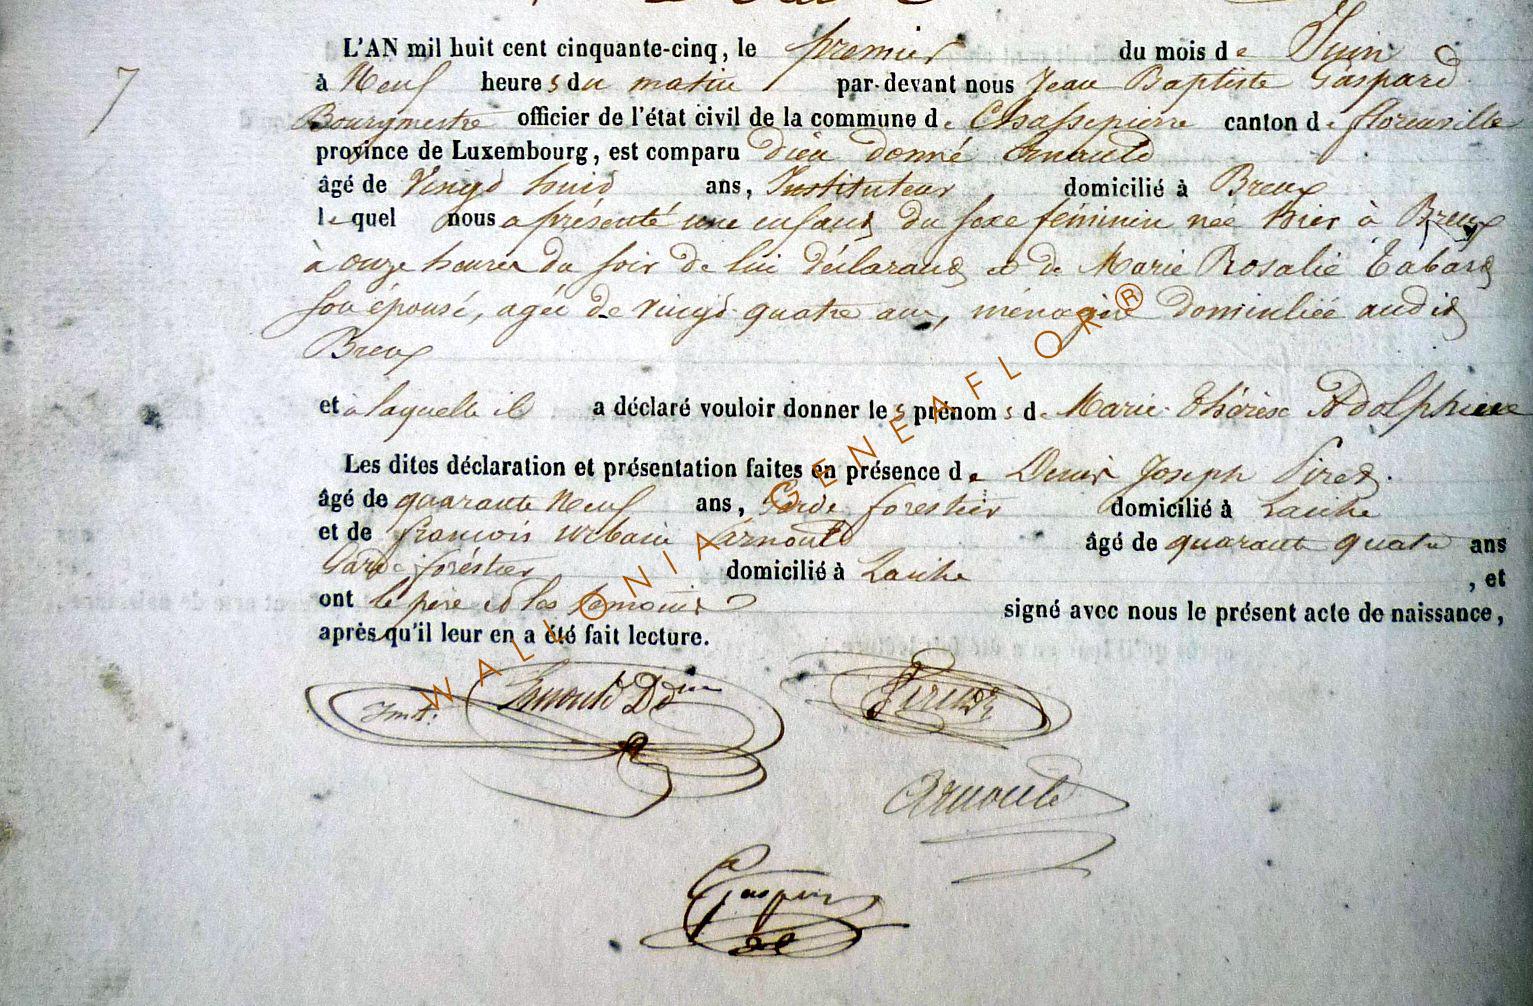 7
L'AN mil huit cent cinquante-cinq, le premier du mois de Juin
à Neuf heures du matin par-devant nous Jean Baptiste Gaspard
Bourgmestre officier de l'état civil de la commune de Chassepierre canton de florenville
province de Luxembourg, est comparu Dieu donné Arnould
âgé de Vingt huit ans, Instituteur domicilié à Breux
lequel nous a présenté une enfant du sexe féminin née hier à Breux
à onze heures du soir de lui déclarant et de Marie Rosalie Tabard
son épouse, agée de vingt quatre ans, ménagère domiciliée audit
Breux
et à laquelle il a déclaré vouloir donner les prénoms de Marie Thérèse Adolphine
Les dites déclaration et présentation faites en présence de Denis Joseph Piret.
âgé de quarante Neuf ans, Garde forestier domicilié à Laiche
et de françois Urbain Arnould âgé de quarante quatre ans
Garde foréstier domicilié à Laiche , et
ont le père et les témoins signé avec nous le présent acte de naissance,
après qu'il leur en a été fait lecture.
Inst. Arnould Dd Piret
Arnould
Gaspard
WALLONIA GENEAFLOR®